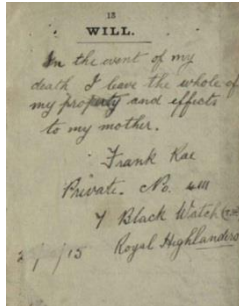 13
WILL.
In the event of my
death I leave the whole of
my property and effects
to my mother.
Frank Rae
Private. No.
7 Black Watch
Royal Highlanders